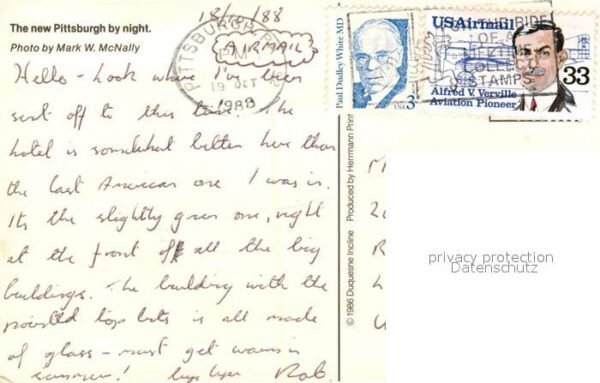 The new Pittsburgh by night.
Photo by Mark W. McNally
18/10/88
AIRMAIL
Hello - Look where I've been
sent off to this time. The
hotel is somewhat better here than
the last American one I was in.
It's the slightly green one, right
at the front of all the big
buildings. The building with the
pointed top bits is all made
of glass - must get warm in
summer! Rob.
PITTSBURGH, PA
PM
19 OCT
1988
© 1986 Duquesne Incline Produced by Herrmann Prin
Paul Dudley White MD
USA 3
USAirmail
33
Alfred V. Verville
Aviation Pioneer
COLLECT
STAMPS
privacy protection
Datenschutz